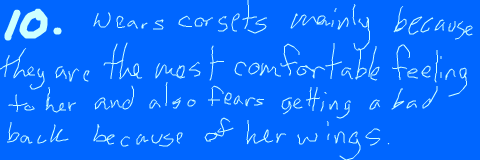 10. Wears corsets mainly because
they are the most comfortable feeling
to her and also fears getting a bad
back because of her wings.